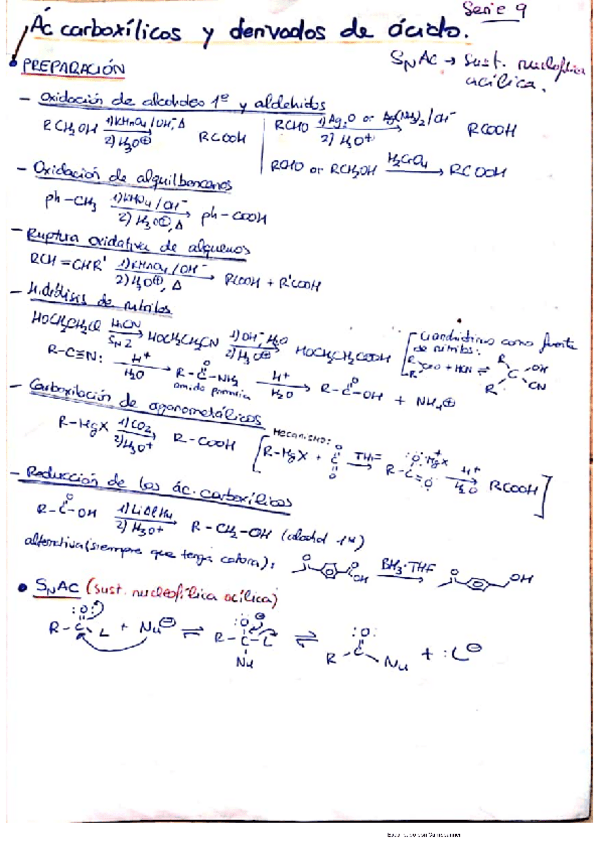 Serie 9
Ác carboxílicos y derivados de ácido.
SNAC → Sust. nucleofílica acílica.
• PREPARACIÓN
- Oxidación de alcoholes 1º y aldehídos
RCH₂OH 1) KMnO₄/OH⁻, Δ 2) H₃O⊕ → RCOOH | RCHO 1) Ag₂O or Ag(NH₃)₂/OH⁻ 2) H₃O⁺ → RCOOH
RCHO or RCH₂OH H₂CrO₄ → RCOOH
- Oxidación de alquilbencenos
ph-CH₃ 1) KMnO₄/OH⁻ 2) H₃O⊕, Δ → ph-COOH
- Ruptura oxidativa de alquenos
RCH=CHR' 1) KMnO₄/OH⁻ 2) H₃O⊕, Δ → RCOOH + R'COOH
- Hidrólisis de nitrilos
HOCH₂CH₂Cl HCN SN2 → HOCH₂CH₂CN 1) OH⁻, H₂O 2) H₃O⊕ → HOCH₂CH₂COOH
[Cianhidrinas como fuente de nitrilos:
+ HCN ⇌ R C OH R CN
R-C≡N: H⁺ H₂O → R-C(=O)-NH₂ amida primaria H⁺ H₂O → R-C(=O)-OH + NH₄⊕
- Carboxilación de organometálicos
R-MgX 1) CO₂ 2) H₃O⁺ → R-COOH [Mecanismo: R-MgX + O=C=O THF → R-C=O :O: MgX H⁺ H₂O → RCOOH]
- Reducción de los ác. carboxílicos
R-C(=O)-OH 1) LiAlH₄ 2) H₃O⁺ → R-CH₂-OH (alcohol 1º)
alternativa (siempre que tenga cetona): O OH BH₃·THF → O OH
• SNAC (sust. nucleofílica acílica)
:O: R-C-L + Nu⊖ ⇌ :O:⊖ R-C-L Nu ⇌ :O: R-C-Nu + :L⊖